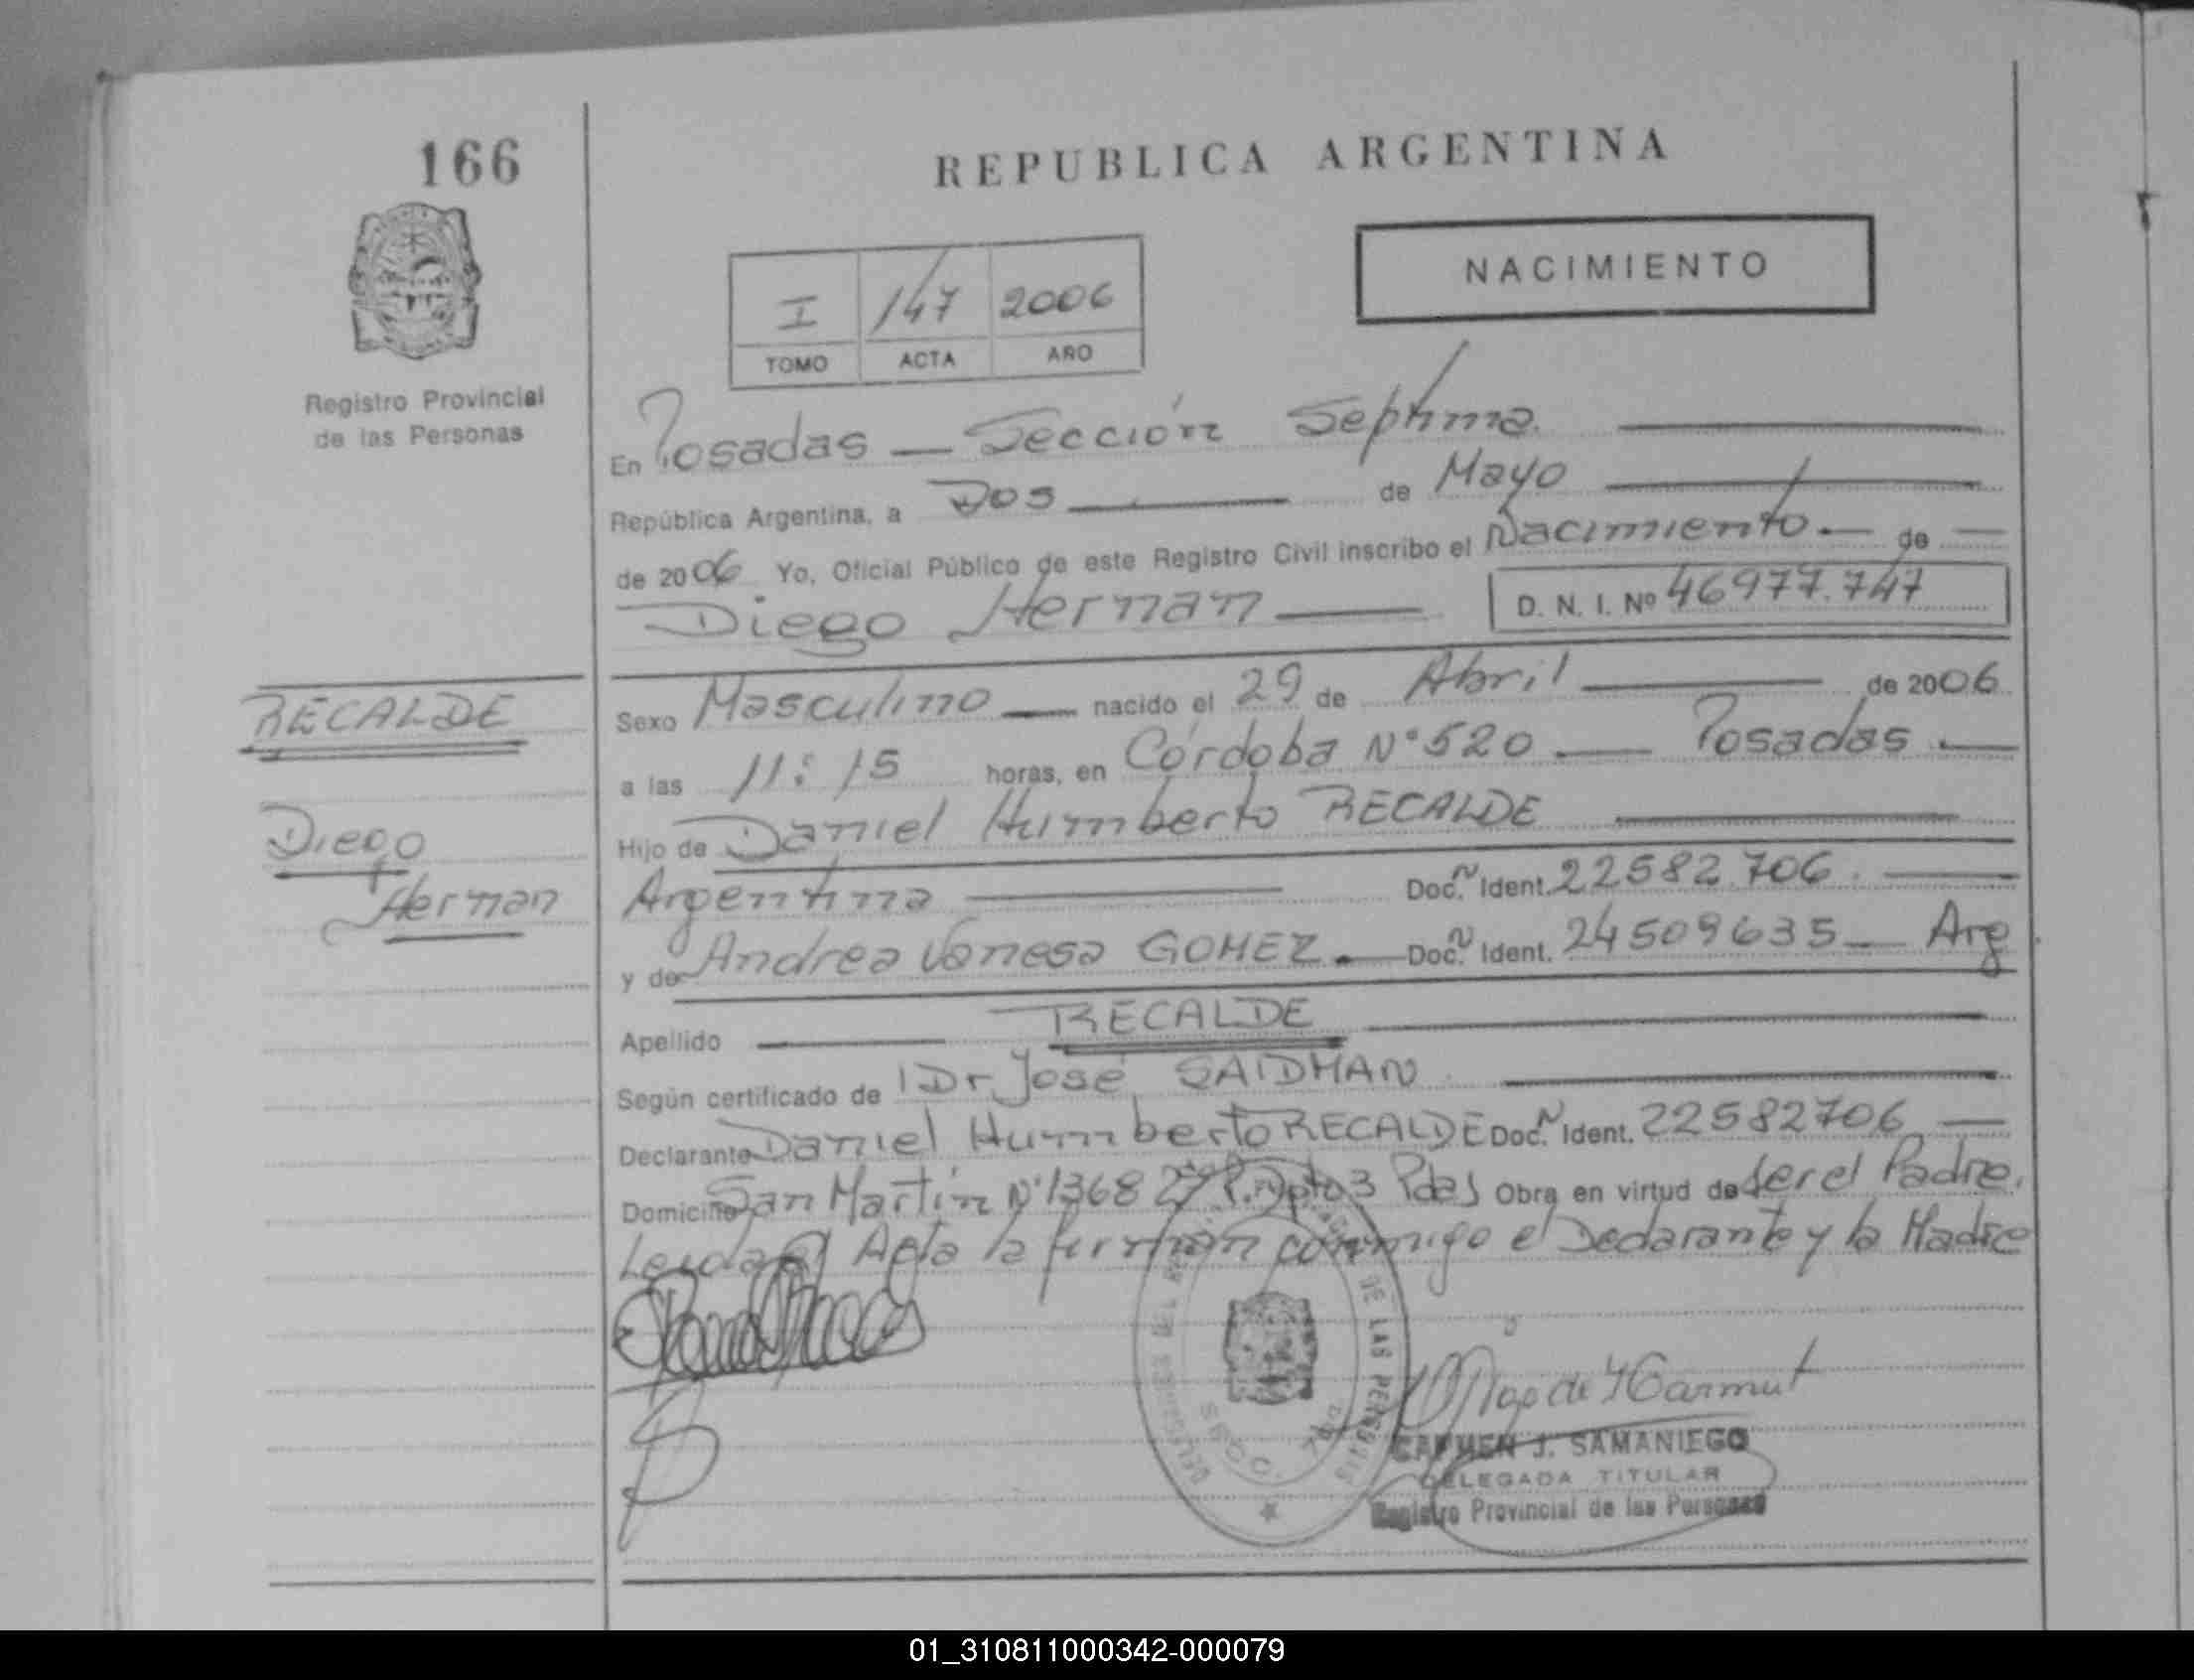 166
REPUBLICA ARGENTINA
NACIMIENTO
I 147 2006
TOMO ACTA AÑO
Registro Provincial
de las Personas
En Posadas — Sección Séptima.
República Argentina, a Dos de Mayo
de 2006 Yo, Oficial Público de este Registro Civil inscribo el Nacimiento.— de
Diego Hernan D. N. I. Nº 46977.747
RECALDE
Diego
Hernan
Sexo Masculino nacido el 29 de Abril de 2006
a las 11:15 horas, en Córdoba Nº 520 — Posadas.
Hijo de Daniel Humberto RECALDE
Argentina Doc.N Ident. 22582706.
y de Andrea Vanesa GOMEZ.— Doc.N Ident. 24509635 — Arg
Apellido RECALDE
Según certificado de Dr José SAIDMAN
Declarante Daniel Humberto RECALDE Doc.N Ident. 22582706
Domicilio San Martín Nº 1368 Dpto 3 Pdas Obra en virtud de ser el Padre.
Leida el Acta la firman conmigo el Declarante y la Madre
DE LAS PERSONAS
CARMEN J. SAMANIEGO
DELEGADA TITULAR
Registro Provincial de las Personas
01_310811000342-000079